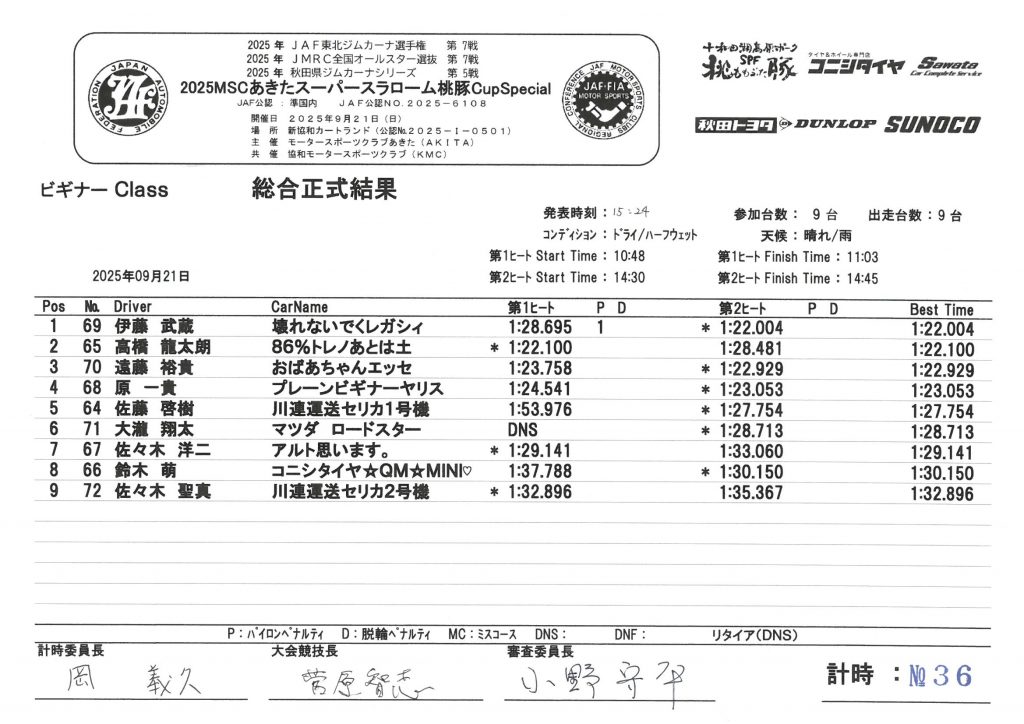 2025 年 JAF東北ジムカーナ選手権 第 7戦
2025 年 JMRC全国オールスター選抜 第 7戦
2025 年 秋田県ジムカーナシリーズ 第 5戦
2025MSCあきたスーパースラローム桃豚CupSpecial
JAF公認 : 準国内 JAF公認NO.2025-6108
開催日 2025年9月21日(日)
場 所 新協和カートランド(公認№2025-I-0501)
主 催 モータースポーツクラブあきた(AKITA)
共 催 協和モータースポーツクラブ(KMC)
JAPAN AUTOMOBILE FEDERATION
JAF
JAF MOTOR SPORTS CLUBS REGIONAL CONFERENCE
JAF-FIA
MOTOR SPORTS
十和田湖高原ポーク
SPF
桃ももぶた豚
タイヤ&ホイール専門店
コニシタイヤ
Sawata
Car Complete Service
秋田トヨタ
DUNLOP
SUNOCO
ビギナー Class 総合正式結果
発表時刻 : 15:24 参加台数 : 9 台 出走台数 : 9 台
コンディション : ドライ/ハーフウェット 天候 : 晴れ/雨
第1ヒート Start Time : 10:48 第1ヒート Finish Time : 11:03
2025年09月21日 第2ヒート Start Time : 14:30 第2ヒート Finish Time : 14:45
Pos No. Driver CarName 第1ヒート P D 第2ヒート P D Best Time
1 69 伊藤 武蔵 壊れないでくレガシィ 1:28.695 1 * 1:22.004 1:22.004
2 65 高橋 龍太朗 86%トレノあとは土 * 1:22.100 1:28.481 1:22.100
3 70 遠藤 裕貴 おばあちゃんエッセ 1:23.758 * 1:22.929 1:22.929
4 68 原 一貴 プレーンビギナーヤリス 1:24.541 * 1:23.053 1:23.053
5 64 佐藤 啓樹 川連運送セリカ1号機 1:53.976 * 1:27.754 1:27.754
6 71 大瀧 翔太 マツダ ロードスター DNS * 1:28.713 1:28.713
7 67 佐々木 洋二 アルト思います。 * 1:29.141 1:33.060 1:29.141
8 66 鈴木 萌 コニシタイヤ☆QM☆MINI♡ 1:37.788 * 1:30.150 1:30.150
9 72 佐々木 聖真 川連運送セリカ2号機 * 1:32.896 1:35.367 1:32.896
P : パイロンペナルティ D : 脱輪ペナルティ MC : ミスコース DNS : DNF : リタイア(DNS)
計時委員長 大会競技長 審査委員長
岡 義久 菅原智志 小野守平
計時 : №36